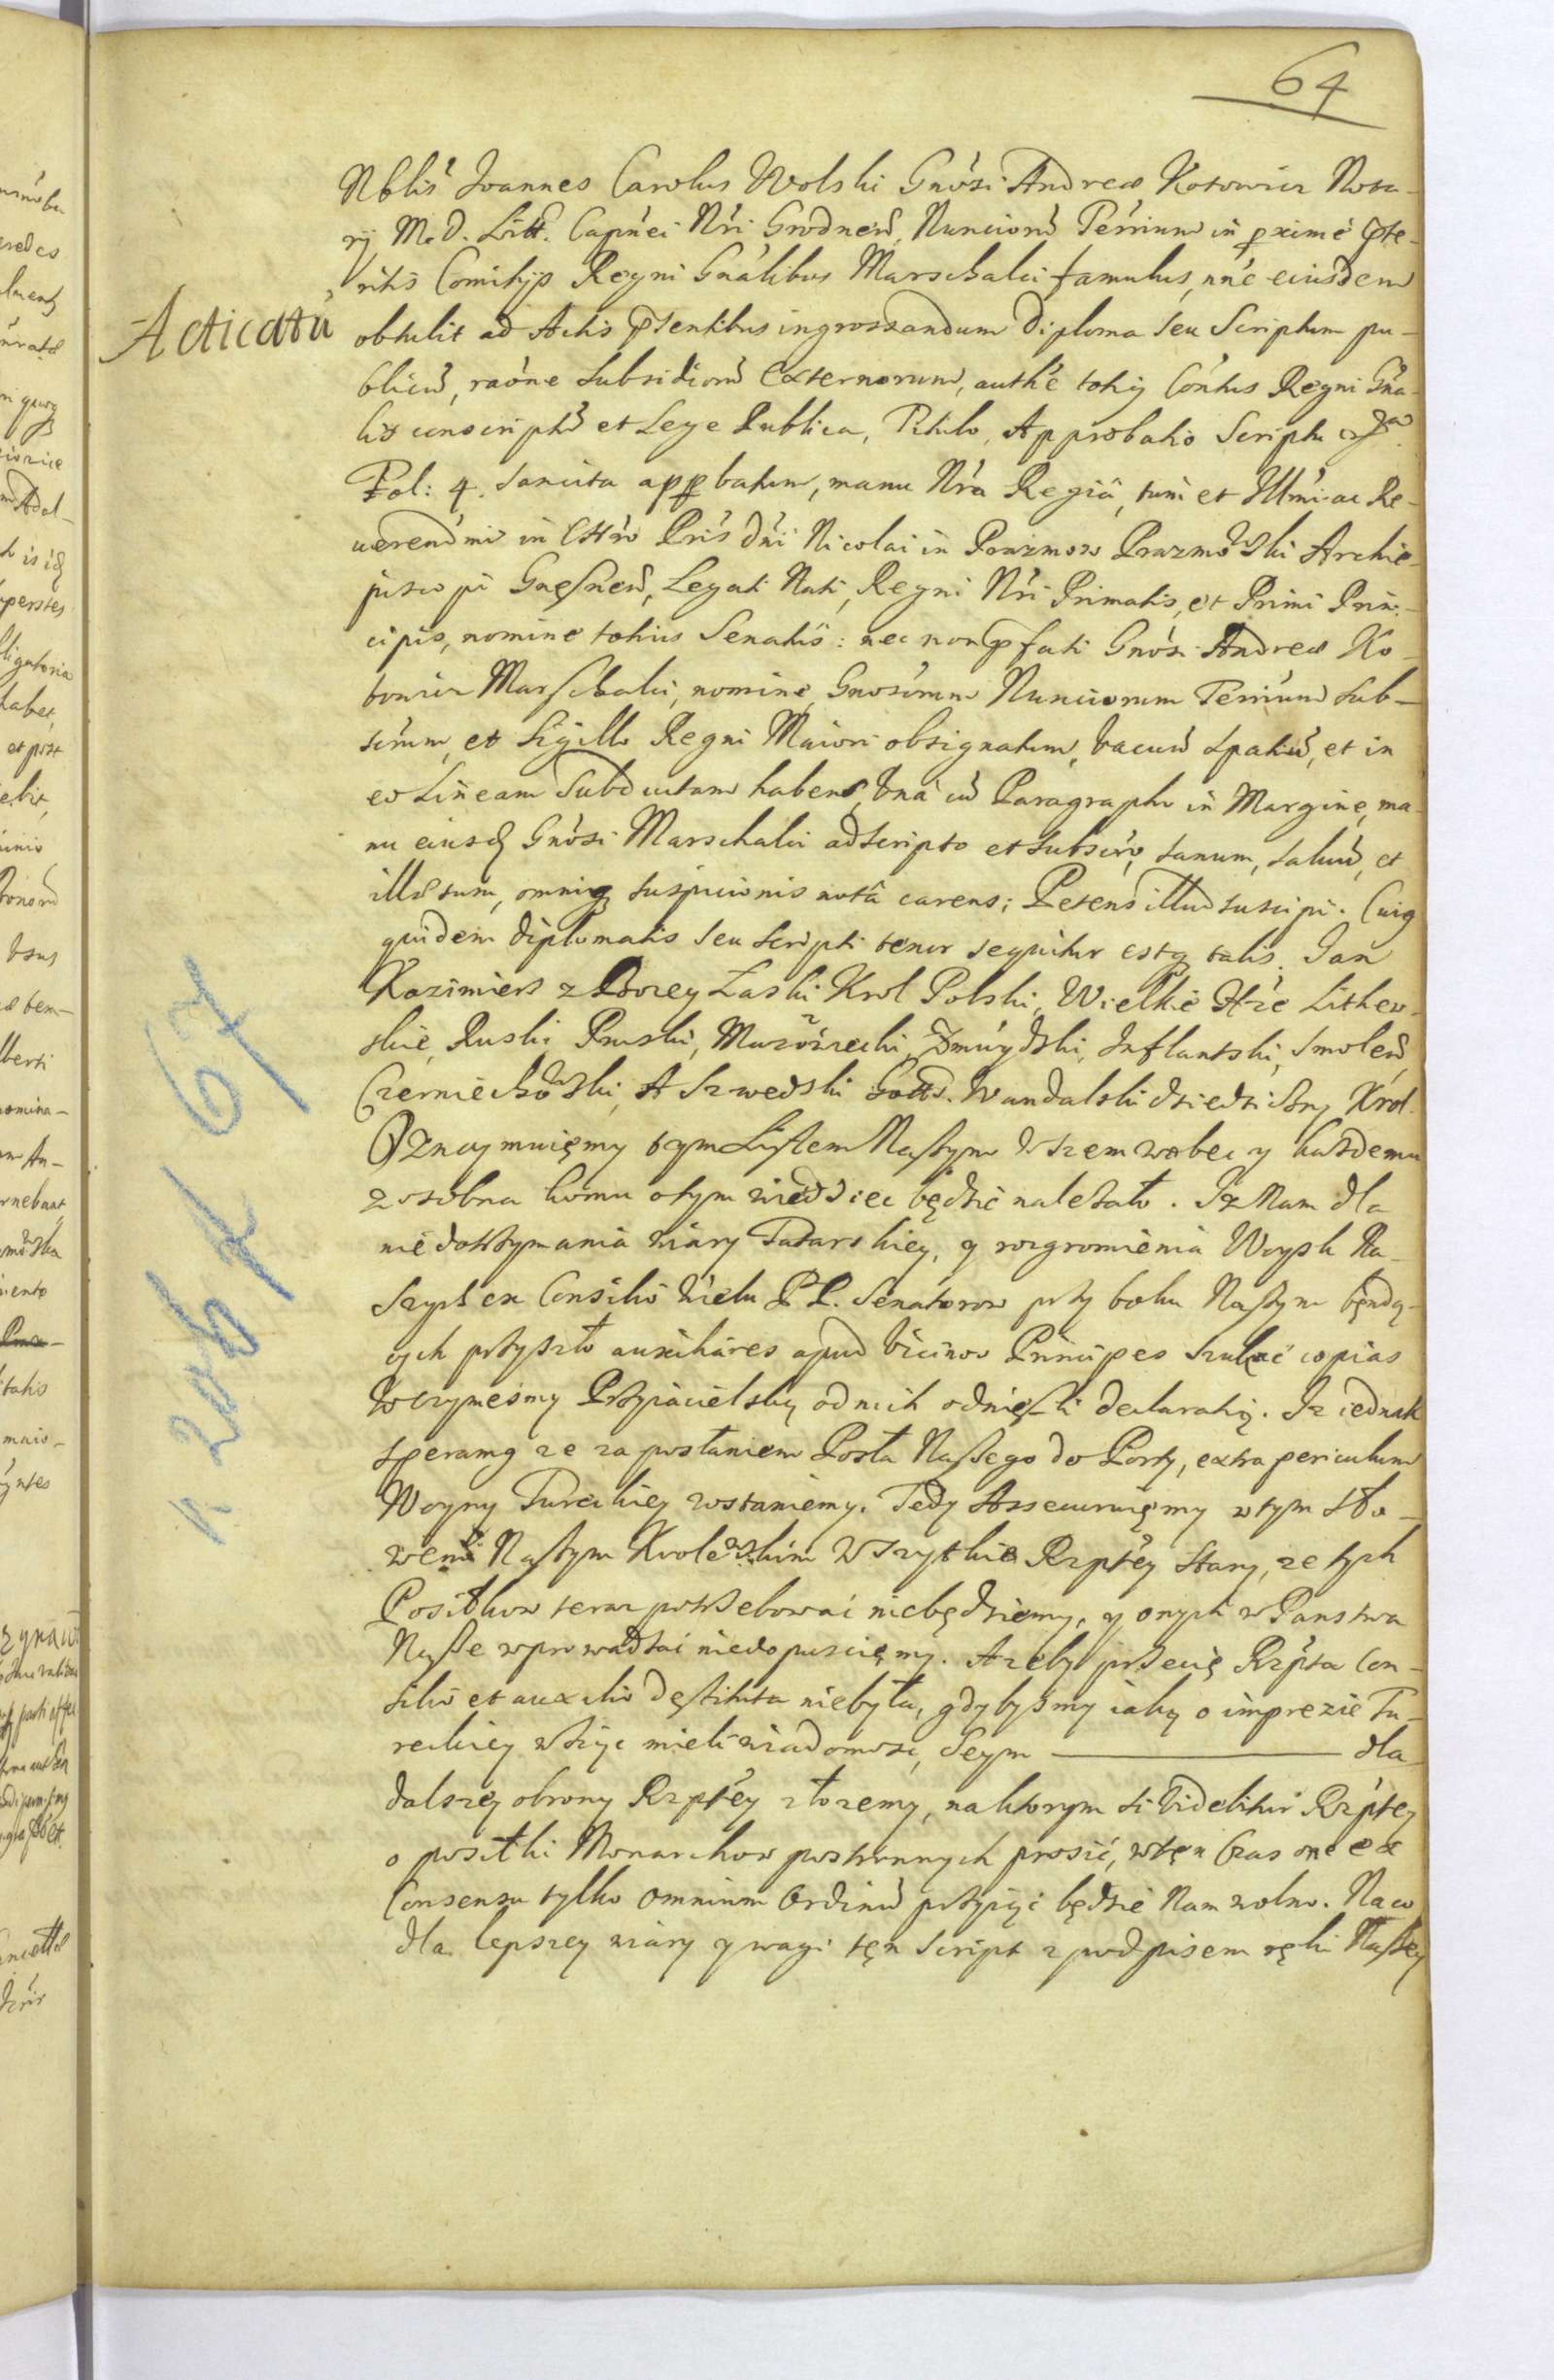 64
Nblis Joannes Carolus Wolski Gnosi Andreæ Kotowicz Nota-
rÿ M. D. Litt. Capnei Nri Grodnen, Nuncioru Terrium in pxime pte-
ritis Comitijs Regni Gnalibus Marschalci famulus, nne eiusdem
Acticatu
obtulit ad Actis psentibus ingrossandum Diploma seu Scriptum pu-
blicu, raone subsidioru Externorum, authe totiq Contus Regni Gna-
lis conscriptu et Lege Publica, Titulo, Approbatio Scriptu
Fol: 4. sancita appbatum, manu Nra Regiâ, tum et Illmi ac Re-
uerendmi in Chro Pris Dni Nicolai in Prazmow Prazmowski Archie-
piscopi Gnesnen, Legati Nati, Regni Nri Primatis, et Primi Prin-
cipis, nomine totius Senatus: nec non pfati Gnosi Andreæ Ko-
towicz Marschalci, nomine Gnosirum Nunciorum Terrium sub-
scirum, et Sigillo Regni Maiori obsignatum, vacuu spatiu, et in
eo Lineam subductam habens, vna cu Paragrapho in Margine, ma-
nu eiusd Gnosi Marschalci adscripto et subscro, sanum, saluu, et
illæsum, omniq suspicionis notâ carens; Petens illud suscipi. Cuiq
quidem diplomatis seu scripti tenor sequitur estq talis. Jan
Kazimierz z Bozey Laski Krol Polski, Wielkie Xże Lithew-
skie, Ruski Pruski, Mazowiecki, Zmuydzki, Inflantski, Smolen,
Czerniechowski, A Szwedski Gotts. Wandalski dziedziczny Krol.
Oznaymuięmy tym Listem Naszym wszem wobec y kazdemu
z osobna komu o tym wiedziec będzie nalezało. Iz Nam dla
niedotrzymania wiary Tatarskiey, y rozgromienia Woysk Na-
szych ex Consilio wielu P P. Senatorow przy boku Naszym będą-
cych przyszło auxiliares apud vicinos Principes szukać copias
Wczymesmy Przyiacielską od nich odnieśli declaratią. Iz iednak
speramq ze za posłaniem Posła Naszego do Porty, extra periculum
Woyny Tureckiey zostaniemy. Tedy Assecuruięmy w tym sło-
wem Naszym Krolewskim wszytkie Rzptey stany, ze tych
Posiłkow teraz potrzebować niebędziemy, y onych w Panstwa
Nasze wprowadzać niedopuscięmy. Azeby przecię Rzpta Con-
silio et auxilio destituta niebyła, gdybysmy iaką o imprezie Tu-
reckiey wziąc mieli wiadomosc, Seym ——— dla
dalszey obrony Rzptey złozemy, na ktorym si videbitur Rzptey
o posiłki Monarchow postronnych prosić, w tęn Czas one ex
Consensu tylko omnium Ordinu przyiąc będzie Nam wolno. Na co
dla lepszey wiary y wagi tęn Script z podpisem ręki Naszey